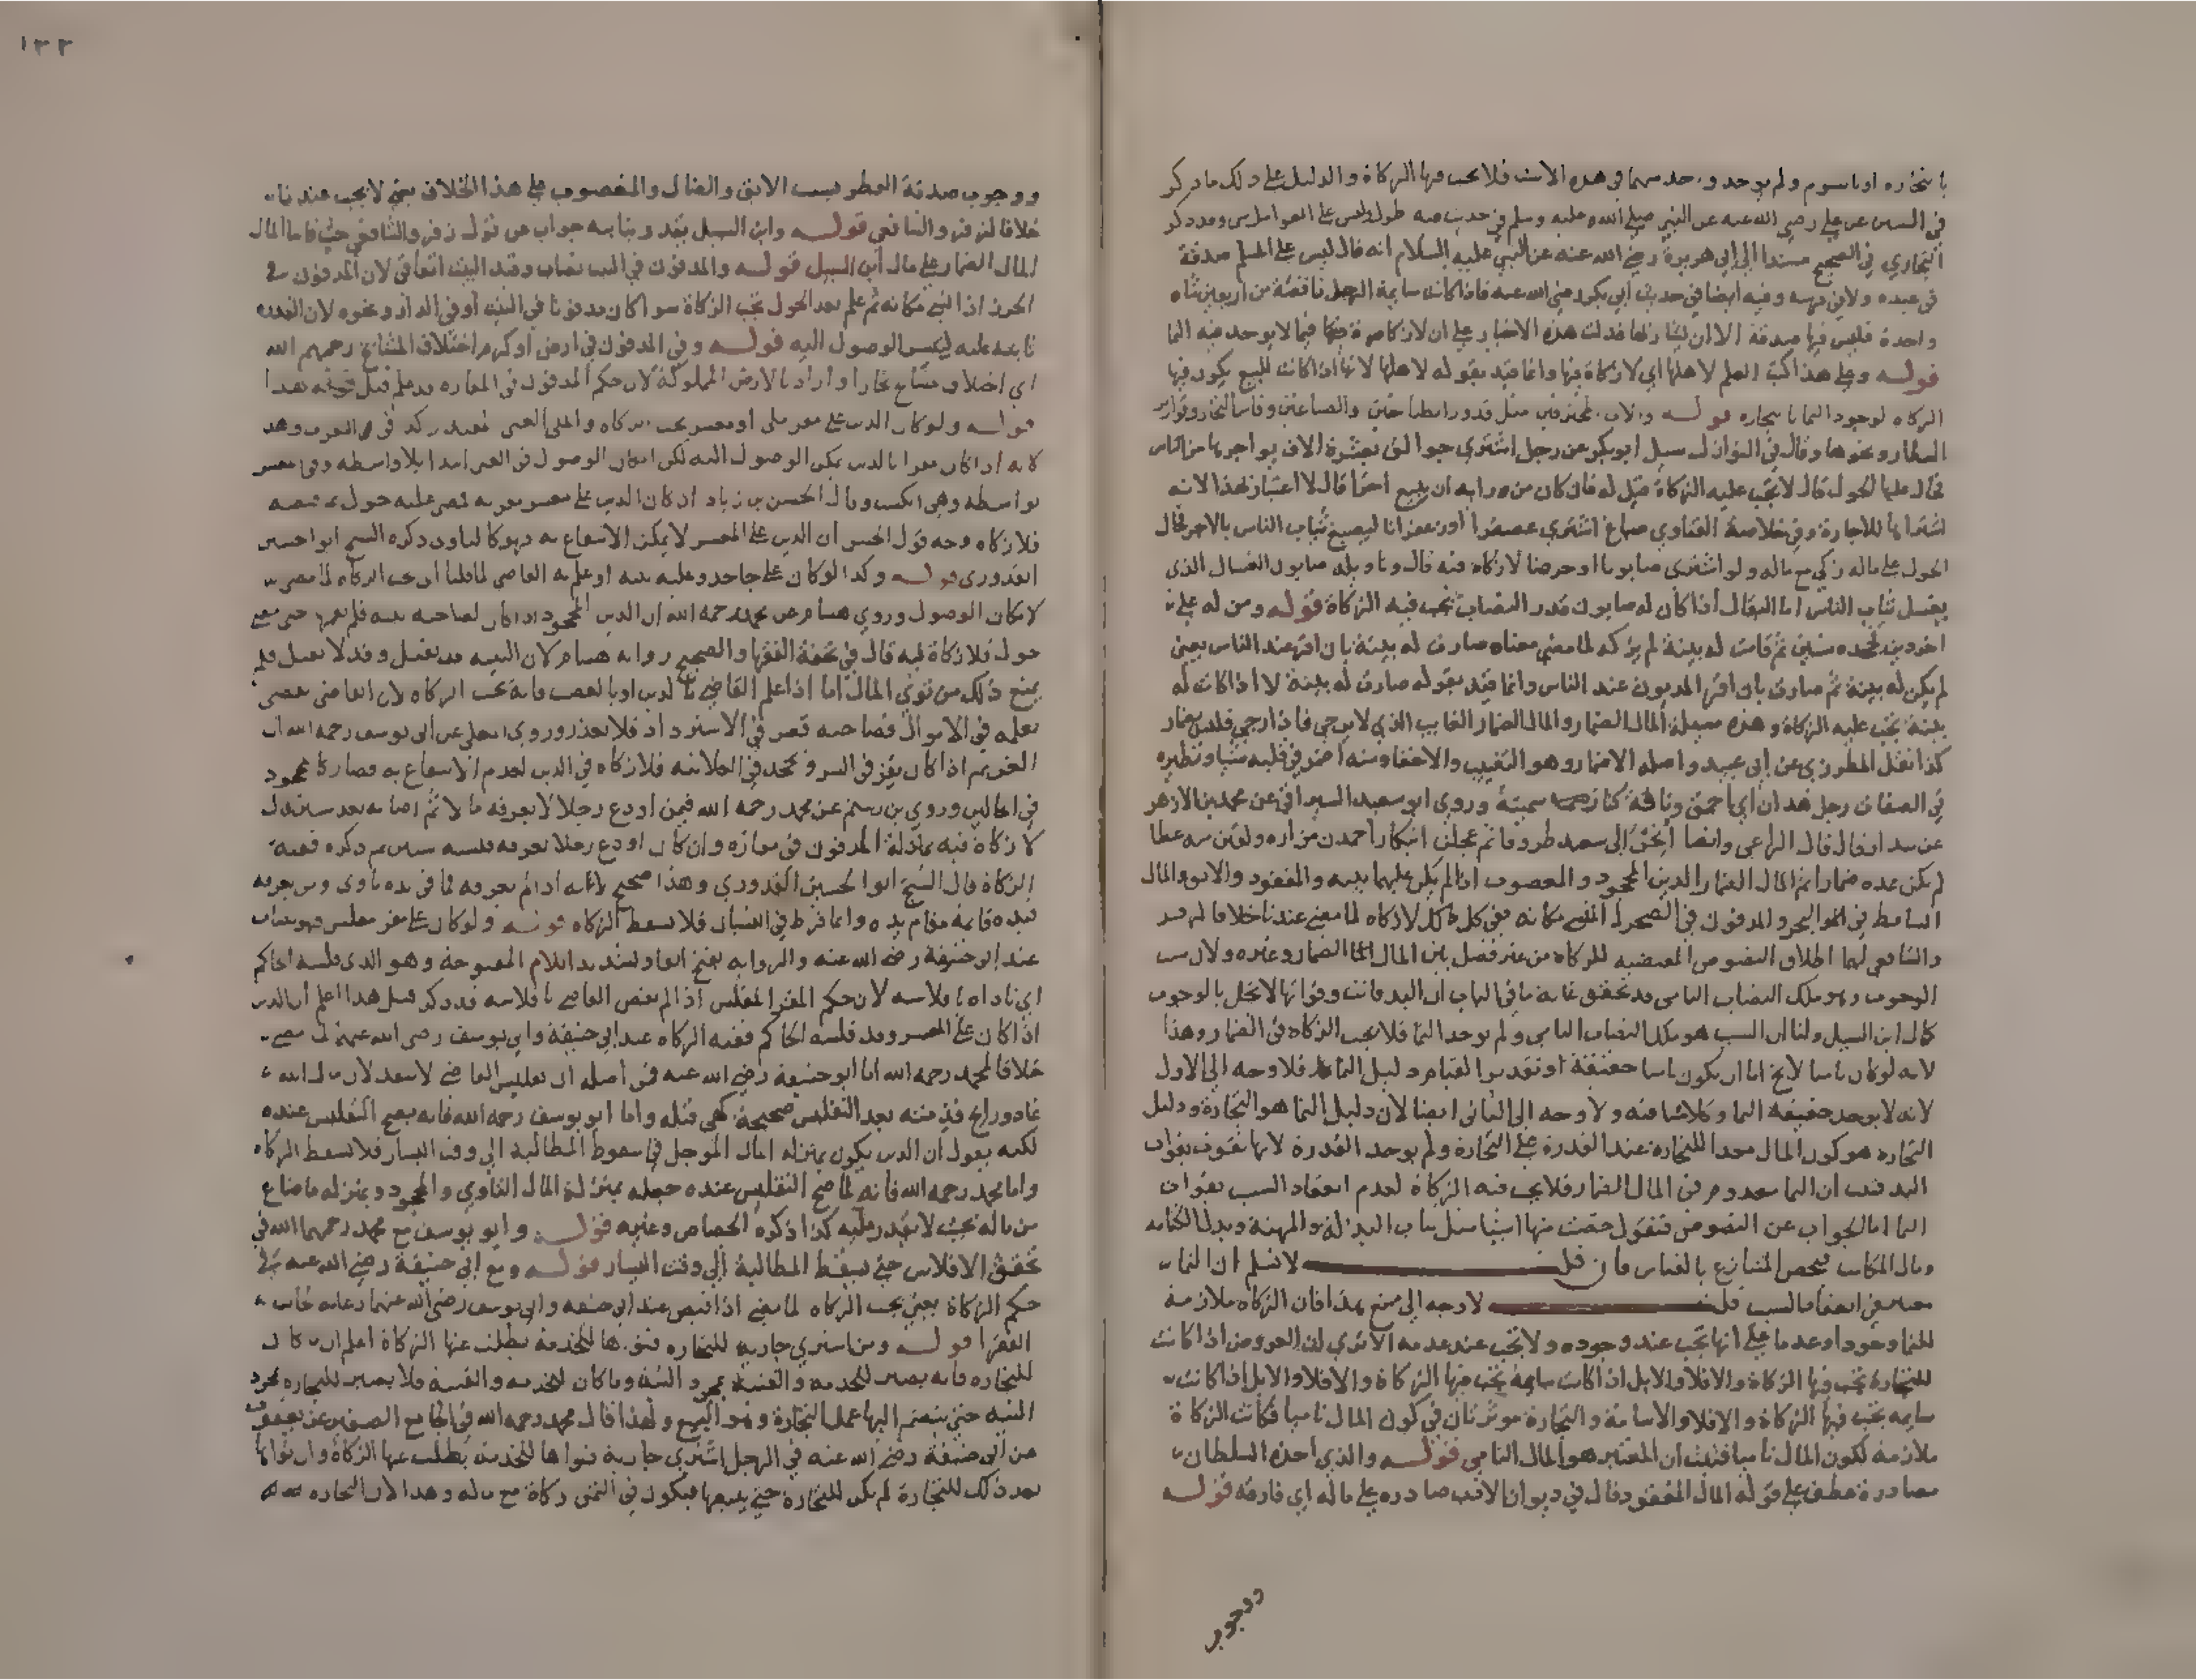 في السنن عن علي رضي الله عنه عن النبي صلى الله عليه وسلم في حديث فيه طول وليس على العوامل شي وقد ذكر
البخاري في الصحيح مسندا الى ابي هريرة رضي الله عنه عن النبي عليه السلام انه قال ليس على المسلم صدقة
في عبده ولا في فرسه وفيه ايضا في حديث ابي بكر رضي الله عنه فاذا كانت سايمة الرجل ناقصة من اربعين شاه
واحدة فليس فيها صدقة الا ان يشا ربها فدلت هذه الاخبار على ان لا زكاة
قوله وعلى هذا كتب العلم لاهلها اي لا زكاة فيها وانما قيد بقوله لاهلها لانها اذا كانت للبيع يكون فيها
الزكاه لوجود النما بالتجاره قوله والات المحترفين مثل قدور الطباخين والصباغين
ونحوها وقال في النوازل سيل ابو بكر عن رجل اشترى جوالق بعشرة الاف يواجرها من الناس
فحال عليها الحول قال لا تجب عليه الزكاة قيل له فان كان من رايه ان يبيع اخرا قال لا اعتبار لهذا لانه
اشتراها للاجارة وفي خلاصة الفتاوي صباغ اشترى عصفرا او زعفرانا ليصبغ ثياب الناس بالاجر فحال
الحول على ماله زكى مع ماله ولو اشترى صابونا او حرضا لا زكاه فيه قال وتاويله صابون الغسال الذي
يغسل ثياب الناس اما البقال اذا كان له صابون قدر النصاب تجب فيه الزكاة قوله ومن له على
اخر دين فجحده سنين ثم قامت له بينة لم يزكه لما مضى معناه صارت له بينة بان اقر عند الناس يعني
لم يكن له بينة ثم صارت بان اقر المديون عند الناس وانما قيد بقوله صارت له بينة لا اذا كانت له
بينة تجب عليه الزكاة وهذه مسيلة المال الضمار والمال الضمار الغايب الذي لا يرجى فاذا رجي فليس بضمار
كذا نقل المطرزي عن ابي عبيد واصله الاضمار وهو التغيب والاخفا ومنه اضمر في قلبه شيا ونظيره
لم يكن عده ضمارا ثم المال الضمار الدين المجحود والمغصوب اذا لم يكن عليهما بينه والمفقود والابق والمال
الساقط في البحر والمدفون في الصحرا اذا نسي مكانه ففي كل ذلك لا زكاه لما مضى عندنا خلافا لزفر
والشافعي لهما اطلاق النصوص المقتضيه للزكاه من غير فصل بين المال الضمار وغيره ولان سبب
الوجوب وهو ملك النصاب النامي قد تحقق غاية ما في الباب ان اليد فاتت وفواتها لا يخل بالوجوب
كمال ابن السبيل ولنا ان السبب هو ملك النصاب النامي ولم يوجد النما فلا يجب الزكاه في الضمار وهذا
لانه لو كان ناميا لا يخ اما ان يكون ناميا حقيقة او تقديرا لقيام دليل النما فلا وجه الى الاول
لانه لا يوجد حقيقه النما وكلامنا فيه ولا وجه الى الثاني ايضا لان دليل النما هو التجارة ودليل
التجاره هو كون المال معدا للتجاره عند القدرة على التجارة ولم يوجد القدرة لانها تفوت بفوات
اليد فثبت ان النما معدوم في المال الضمار فلا يجب فيه الزكاة لعدم انعقاد السبب بفوات
النما اما الجواب عن النصوص فنقول خصت منها اشيا مثل ثياب البذلة والمهنة وبدل الكتابه
ومال المكاتب فيخص المتنازع بالقياس فان قلت لا نسلم ان النما
معتبر في انعقاد السبب قلت لا وجه الى منع هذا فان الزكاه ملازمة
للنما وجودا وعدما على انها تجب عند وجوده ولا تجب عند عدمه الا ترى ان العروض اذا كانت
للتجارة تجب فيها الزكاة والا فلا والابل اذا كانت سايمة تجب فيها الزكاة والا فلا والابل اذا كانت
سايمه تجب فيها الزكاة والا فلا والاسامة والتجارة موثرتان في كون المال ناميا فكانت الزكاة
ملازمه لكون المال ناميا فثبت ان المعتبر هو المال النامي قوله والذي اخذه السلطان
مصادرة عطف على قوله المال المفقود قال في ديوان الادب صادره على ماله اي فارقه قوله
ووجوب
١٣٣
ووجوب صدقة الفطر بسبب الابق والضال والمغصوب على هذا الخلاف يعني لا يجب عندنا
خلافا لزفر والشافعي قوله وابن السبيل يقدر بنايبه جواب عن قول زفر والشافعي حيث قاسا المال
المال الضمار على مال ابن السبيل قوله والمدفون في البيت نصاب وقيد البيت اتفاقي لان المدفون في
الحرز اذا نسي مكانه ثم علم بعد الحول تجب الزكاة سوا كان مدفونا في البيت او في الدار ونحوه لان
لتيسر الوصول اليه قوله وفي المدفون في ارض او كرم اختلاف المشايخ رحمهم الله
اي اختلاف مشايخ بخارا واراد بالارض المملوكة لان حكم المدفون في المفازه قد علم قبل هذا
قوله ولو كان الدين على مقر ملي او معسر تجب الزكاه
لانه اذا كان مقرا بالدين يمكن الوصول اليه لكن امكان الوصول في الغني ابتدا بلا واسطه وفي معسر
بواسطه وهي الكسب وقال الحسن بن زياد ان كان الدين على معسر
فلا زكاه وجه قول الحسن ان الدين على المعسر لا يمكن الانتفاع به فهو كالتاوي ذكره الشيخ ابو الحسين
القدوري قوله وكذا لو كان على جاحد وعليه بينه او علم به القاضي لما قلنا
لامكان الوصول وروى هشام عن محمد رحمه الله ان الدين المجحود اذا كان لصاحبه بينه فلم يقمها حتى مضى
حول فلا زكاة فيه قال في تحفة الفقها والصحيح رواية هشام لان البينه قد تقبل وقد لا تقبل فلم
يمنع ذلك من توي المال اما اذا علم القاضي بالدين او بالغصب فانه تجب الزكاه لان القاضي يقضي
بعلمه في الاموال فصاحبه قصر في الاسترداد فلا يعذر وروى المعلى عن ابي يوسف رحمه الله ان
الغريم اذا كان يقر في السر ويجحد في العلانيه فلا زكاه في الدين لعدم الانتفاع به فصار كالمجحود
في الحالين وروى بن رستم عن محمد رحمه الله فيمن اودع رجلا لا يعرفه مالا ثم اصابه بعد سنين قال
لا زكاة فيه بمنزلة المدفون في مفازه وان كان اودع رجلا يعرفه فنسيه سنين ثم ذكره فعليه
الزكاة قال الشيخ ابو الحسين القدوري وهذا صحيح
فيده قايمة مقام يده وانما فرط في النسيان فلا تسقط الزكاه قوله ولو كان على مقر مفلس فهو نصاب
عند ابي حنيفة رضي الله عنه والروايه بفتح الفا وتشديد اللام المفتوحة وهو الذي فلسه الحاكم
اي ناداه بافلاسه لان حكم المقر المفلس اذا لم يقض القاضي بافلاسه قد ذكر قبل هذا اعلم ان الدين
اذا كان على المعسر وقد فلسه الحاكم ففيه الزكاه عند ابي حنيفة وابي يوسف رضي الله عنهما لما مضى
خلافا لمحمد رحمه الله اما ابو حنيفة رضي الله عنه فمن اصله ان تفليس القاضي لا ينفذ لان مال الله
غاد ورايح فذمته بعد التفليس صحيحة كهي قبله واما ابو يوسف رحمه الله فانه يصح التفليس عنده
لكنه يقول ان الدين يكون بمنزله المال الموجل في سقوط المطالبة الى وقت اليسار فلا تسقط الزكاه
واما محمد رحمه الله فانه لما صح التفليس عنده جعله بمنزلة المال التاوي والمجحود وبمنزله ما ضاع
من ماله بحيث لا يقدر عليه كذا ذكره الجصاص وغيره قوله وابو يوسف مع محمد رحمهما الله في
تحقق الافلاس حتى تسقط المطالبة الى وقت اليسار قوله ومع ابي حنيفة رضي الله عنه في
حكم الزكاة يعني تجب الزكاه لما مضى اذا قبض عند ابي حنيفه وابي يوسف رضي الله عنهما رعاية لجانب
الفقرا قوله ومن اشترى جارية للتجاره فنواها للخدمة بطلت عنها الزكاة اعلم ان ما كان
للتجاره فانه يصير للخدمه والقنية بمجرد النية وما كان للخدمه والقنية فلا يصير للتجاره بمجرد
النيه حتى ينضم اليها عمل التجارة وهو البيع ولهذا قال محمد رحمه الله في الجامع الصغير عن يعقوب
عن ابي حنيفة رضي الله عنه في الرجل اشترى جارية فنواها للخدمة بطلت عنها الزكاة وان نواها
بعد ذلك للتجارة لم يكن للتجارة حتى يبيعها فيكون في الثمن زكاة مع ماله وهذا لان التجاره